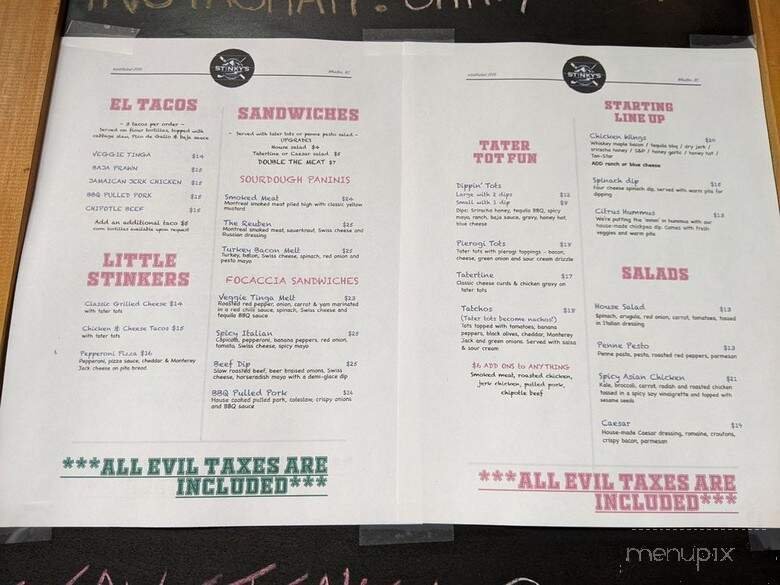 STINKY'S
EL TACOS
~ 3 tacos per order ~
Served on flour tortillas, topped with
cabbage slaw, Pico de Gallo & baja sauce
VEGGIE TINGA $14
BAJA PRAWN $15
JAMAICAN JERK CHICKEN $15
BBQ PULLED PORK $15
CHIPOTLE BEEF $15
Add an additional taco $5
corn tortillas available upon request
LITTLE
STINKERS
Classic Grilled Cheese $14
with tater tots
Chicken & Cheese Tacos $15
with tater tots
Pepperoni Pizza $16
Pepperoni, pizza sauce, cheddar & Monterey
Jack cheese on pita bread
SANDWICHES
~ Served with tater tots or penne pesto salad ~
UPGRADES
House salad $4
Tatertine or Caesar salad $5
DOUBLE THE MEAT $7
SOURDOUGH PANINIS
Smoked Meat $24
Montreal smoked meat piled high with classic yellow
mustard
The Reuben $25
Montreal smoked meat, sauerkraut, Swiss cheese and
Russian dressing
Turkey Bacon Melt $25
Turkey, bacon, Swiss cheese, spinach, red onion and
pesto mayo
FOCACCIA SANDWICHES
Veggie Tinga Melt $23
Roasted red pepper, onion, carrot & yam marinated
in a red chili sauce, spinach, Swiss cheese and
tequila BBQ sauce
Spicy Italian $25
Capicolli, pepperoni, banana peppers, red onion,
tomato, Swiss cheese, spicy mayo
Beef Dip $25
Slow roasted beef, beer braised onions, Swiss
cheese, horseradish mayo with a demi-glace dip
BBQ Pulled Pork $24
House cooked pulled pork, coleslaw, crispy onions
and BBQ sauce
***ALL EVIL TAXES ARE
INCLUDED***
STINKY'S
TATER
TOT FUN
Dippin' Tots
Large with 2 dips $12
Small with 1 dip $9
Dips: Sriracha honey, tequila BBQ, spicy
mayo, ranch, baja sauce, gravy, honey hot,
blue cheese
Pierogi Tots $18
Tater tots with pierogi toppings - bacon,
cheese, green onion and sour cream drizzle
Tatertine $17
Classic cheese curds & chicken gravy on
tater tots
Tatchos $18
(Tater tots become nachos!)
Tots topped with tomatoes, banana
peppers, black olives, cheddar, Monterey
Jack and green onions. Served with salsa
& sour cream
$6 ADD ONS to ANYTHING
Smoked meat, roasted chicken,
jerk chicken, pulled pork,
chipotle beef
STARTING
LINE UP
Chicken Wings $20
Whiskey maple bacon / tequila bbq / dry jerk /
sriracha honey / S&P / honey garlic / honey hot /
Tan-Star
ADD ranch or blue cheese
Spinach dip $15
Four cheese spinach dip, served with warm pita for
dipping
Citrus Hummus $13
We're putting the 'mmm' in hummus with our
house-made chickpea dip. Comes with fresh
veggies and warm pita
SALADS
House Salad $13
Spinach, arugula, red onion, carrot, tomatoes, tossed
in Italian dressing
Penne Pesto $13
Penne pesto, pesto, roasted red peppers, parmesan
Spicy Asian Chicken $21
Kale, broccoli, carrot, radish and roasted chicken
tossed in a spicy soy vinaigrette and topped with
sesame seeds
Caesar $19
House-made Caesar dressing, romaine, croutons,
crispy bacon, parmesan
***ALL EVIL TAXES ARE
INCLUDED***
menupix